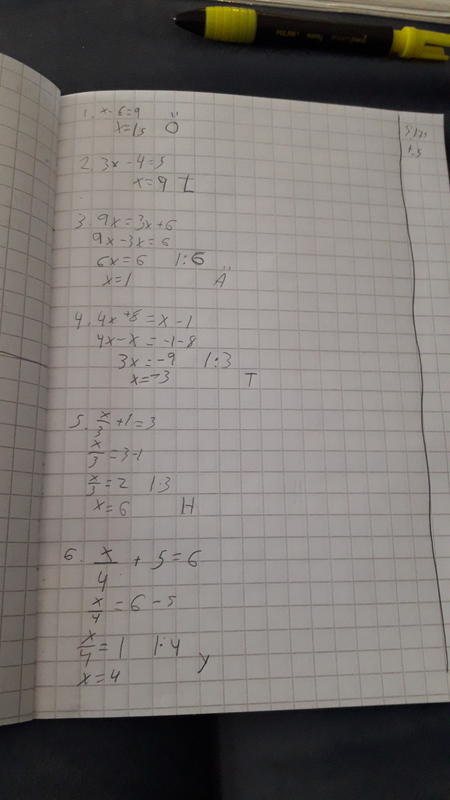 1. x-6=9
x=15 Ö
2. 3x-4=5
x=9 L
3. 9x=3x+6
9x-3x=6
6x=6 |:6
x=1 Ä
4. 4x+8=x-1
4x-x=-1-8
3x=-9 |:3
x=-3 T
5. x/3+1=3
x/3=3-1
x/3=2 |·3
x=6 H
6. x/4+5=6
x/4=6-5
x/4=1 |·4
x=4 Y